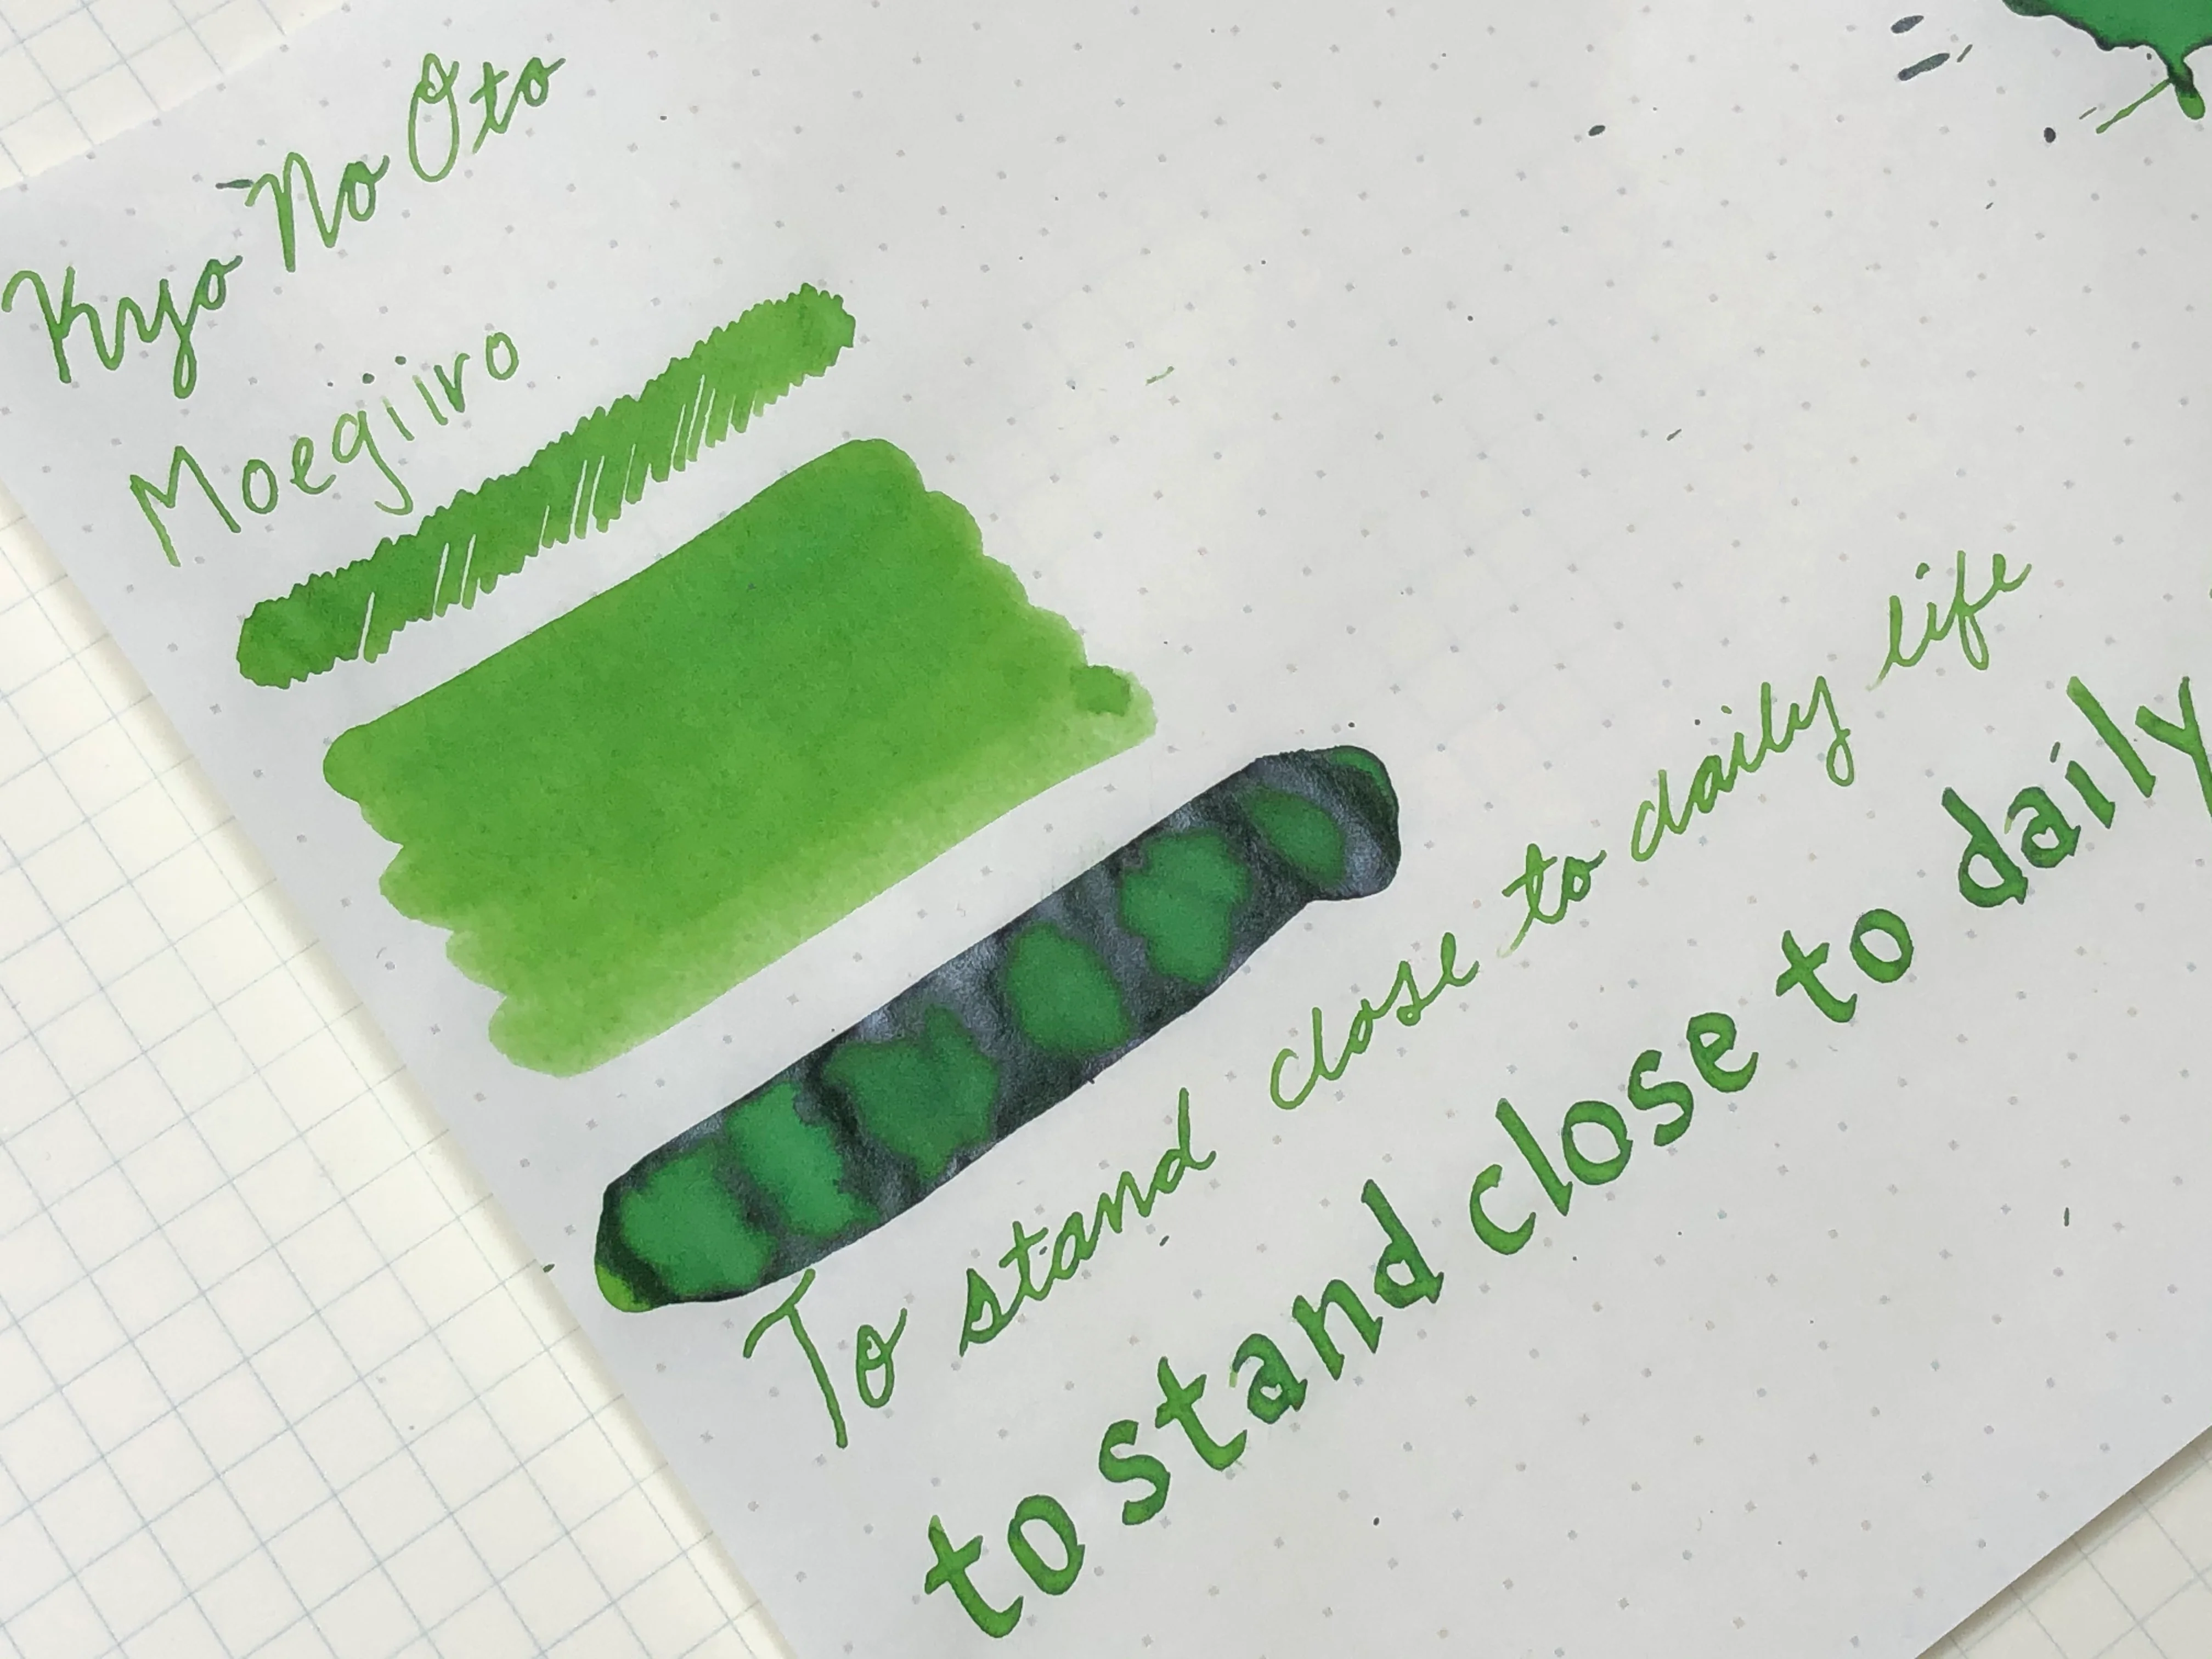 Kyo No Oto
Moegiiro
To stand close to daily life
to stand close to daily